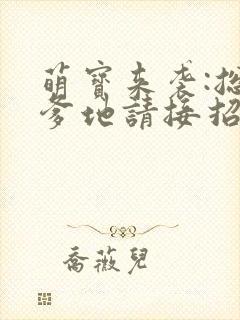 萌寶來襲:總
爹地請接招
喬薇兒